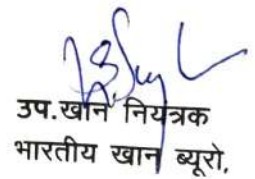 उप.खान नियंत्रक
भारतीय खान ब्यूरो.